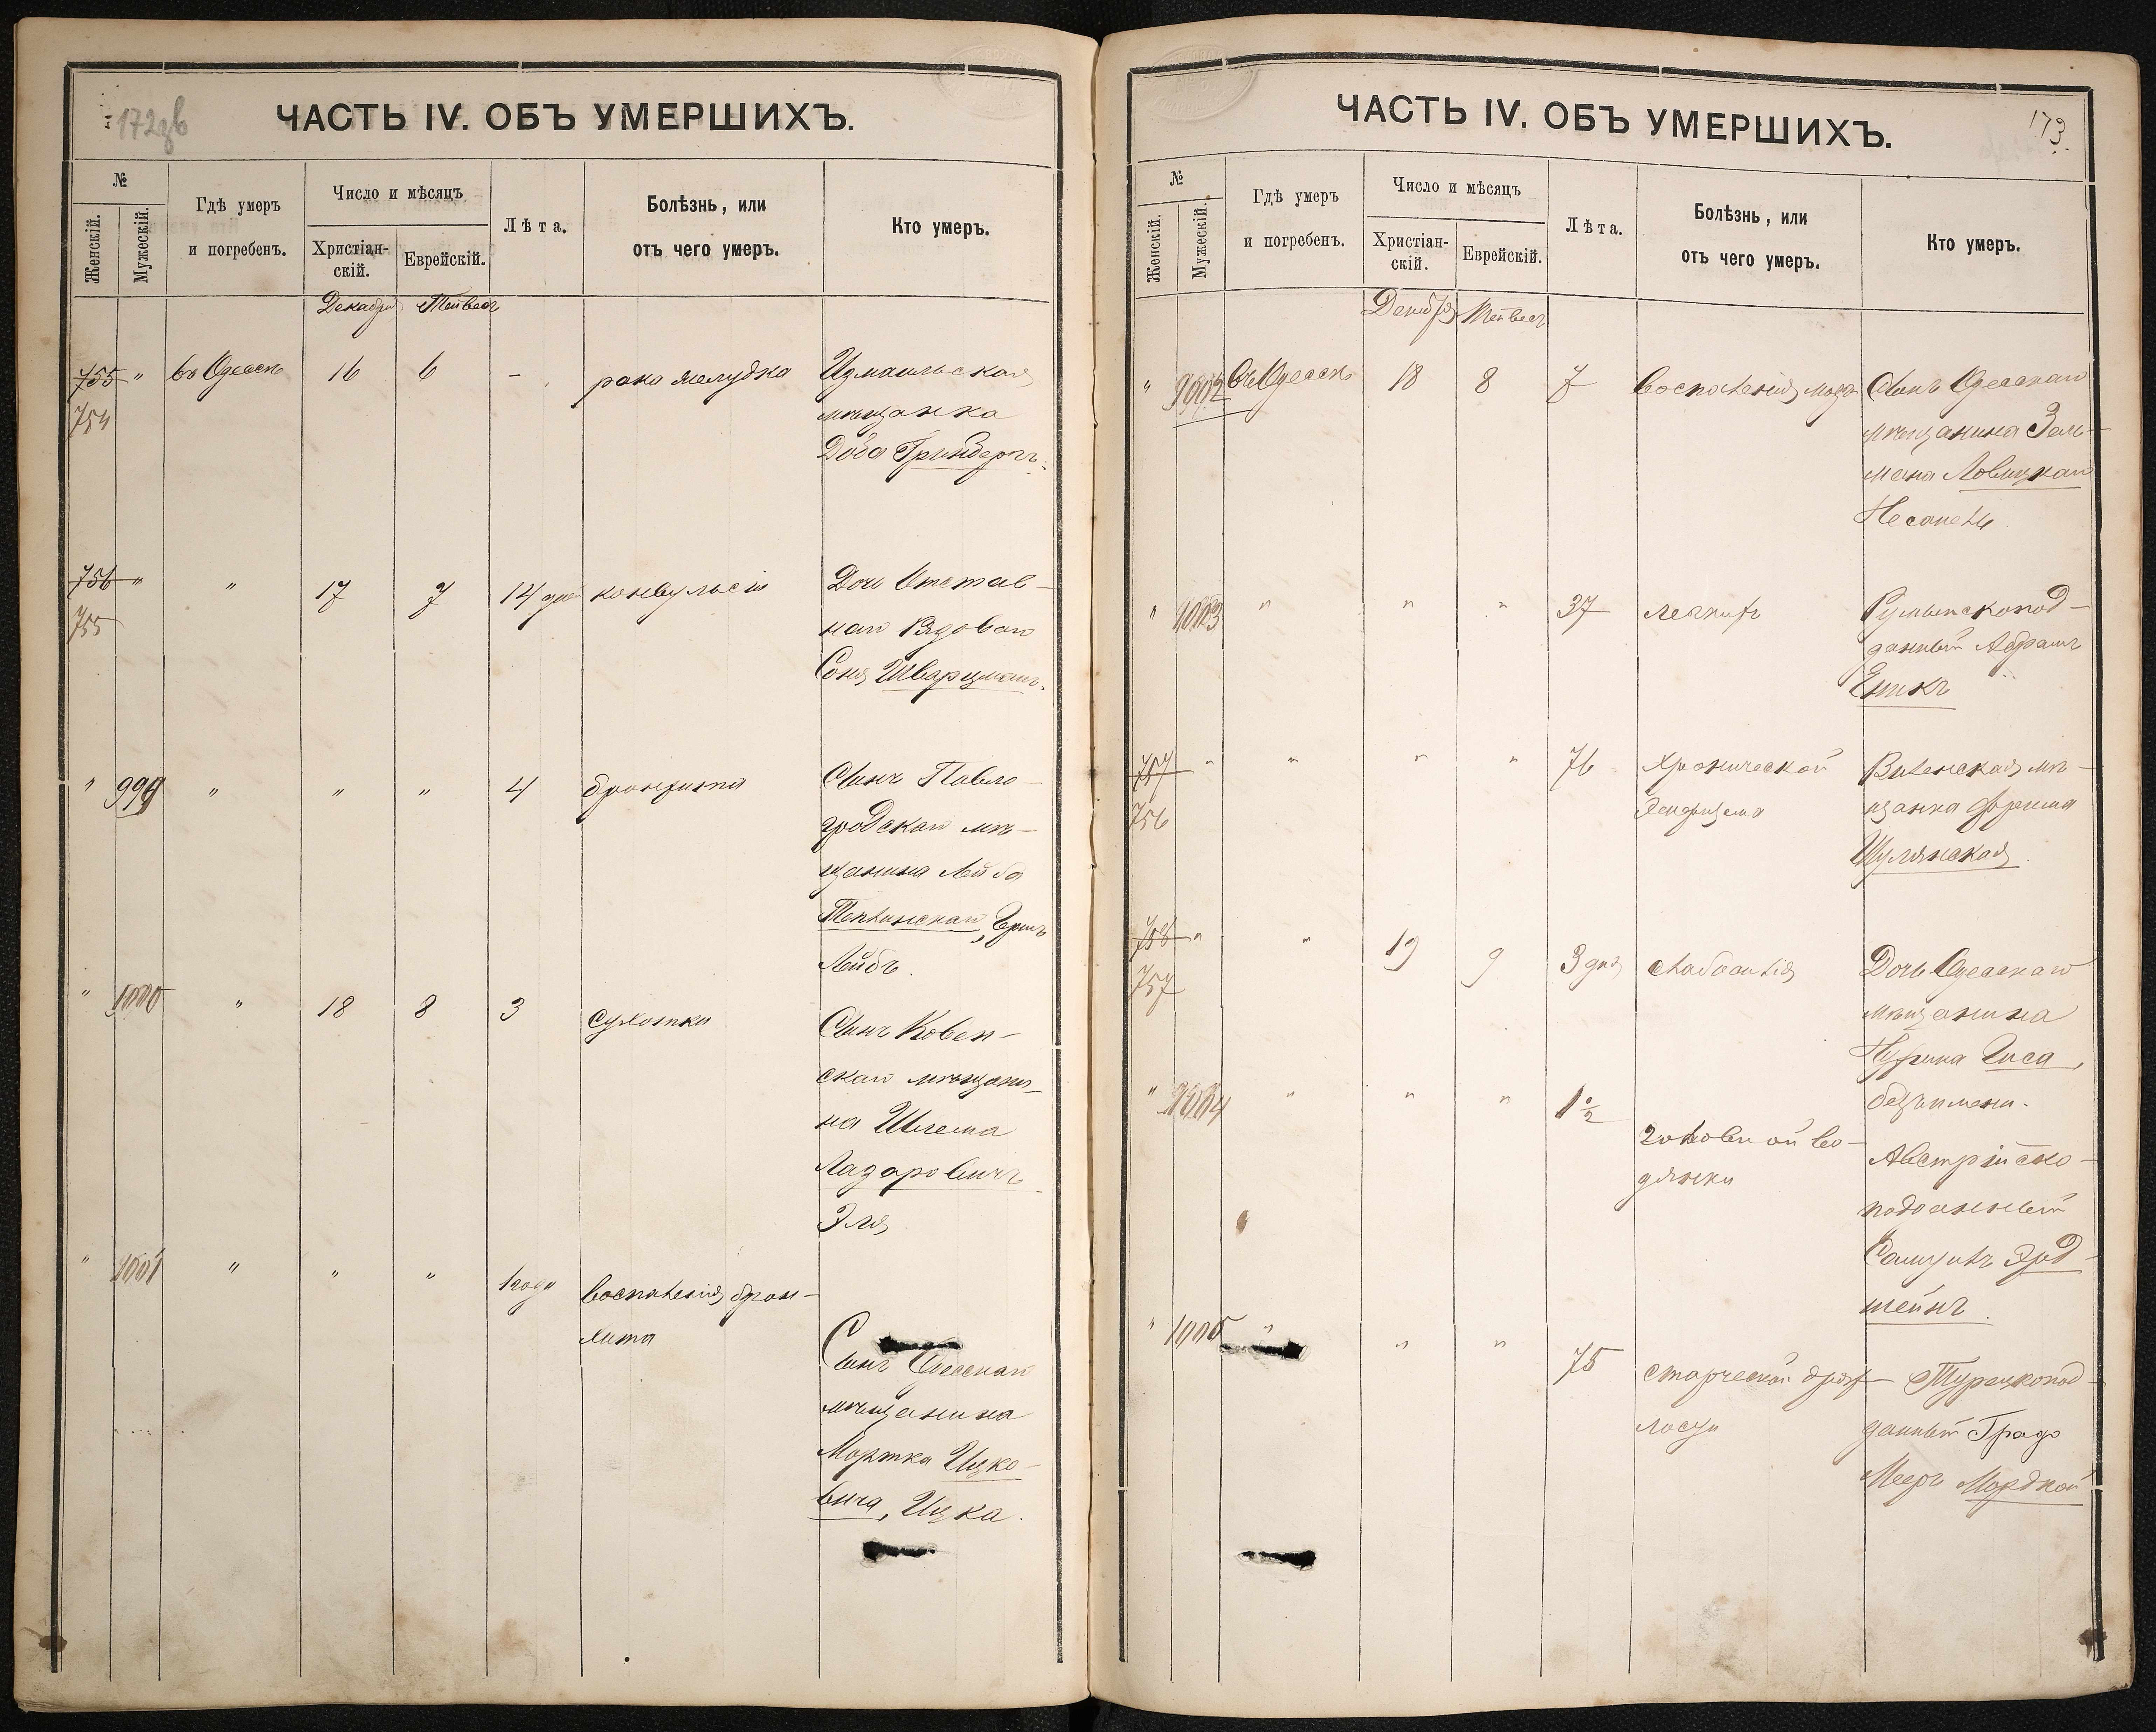 172 об
ЧАСТЬ IV. ОБЪ УМЕРШИХЪ.
№
Женскій.
Мужескій.
Гдѣ умеръ
и погребенъ.
Число и мѣсяцъ
Христіан-
скій.
Еврейскій.
Лѣта.
Болѣзнь, или
отъ чего умеръ.
Кто умеръ.
Декабря Тейвесъ
755 " въ Одессѣ 16 6 - рака желудка Измаильская
754 мѣщанка
Доба Гринбергъ.
756 " " 17 7 14 дне конвульсіи Дочь Отстав-
755 наго Рядоваго
Соня Шварцманъ.
" 999 " " " 4 бронхита Сынъ Павло-
градскаго мѣ-
щанина Лейба
Теплинскаго, Гершъ
Лейбъ.
" 1000 " 18 8 3 сухотки Сынъ Ковен-
скаго мѣщани-
на Шлема
Лазаровичъ
Эля
" 1001 " " " 1 года воспаленія брон-
хита
Сынъ Одесскаго
мѣщанина
Мортка Ицко-
вича, Ицка.
173.
ЧАСТЬ IV. ОБЪ УМЕРШИХЪ.
№
Женскій.
Мужескій.
Гдѣ умеръ
и погребенъ.
Число и мѣсяцъ
Христіан-
скій.
Еврейскій.
Лѣта.
Болѣзнь, или
отъ чего умеръ.
Кто умеръ.
Декабря Тейвесъ
" 1002 въ Одессѣ 18 8 7 воспаленія мозга Сынъ Одесскаго
мѣщанина Зель-
мана Ловицкаго
" 1003 " " " 37 легкихъ Румынскопод-
данный Абрамъ
Еткъ
757 " " " " 76 хронической Виленская мѣ-
756 щанка Фрейма
Шулянская.
758 " " 19 9 3 дня слабосилія Дочь Одесскаго
757 мѣщанина
Нухима Гиса,
безъ имени.
" 1004 " " " 1 ½ головной во-
дянки
Австрійско-
подданный
Самуилъ Эрд-
штейнъ.
" 1005 " " " 75 старческой дрях-
лости
Турецкопод-
данный Градо
Мееръ Мордкой